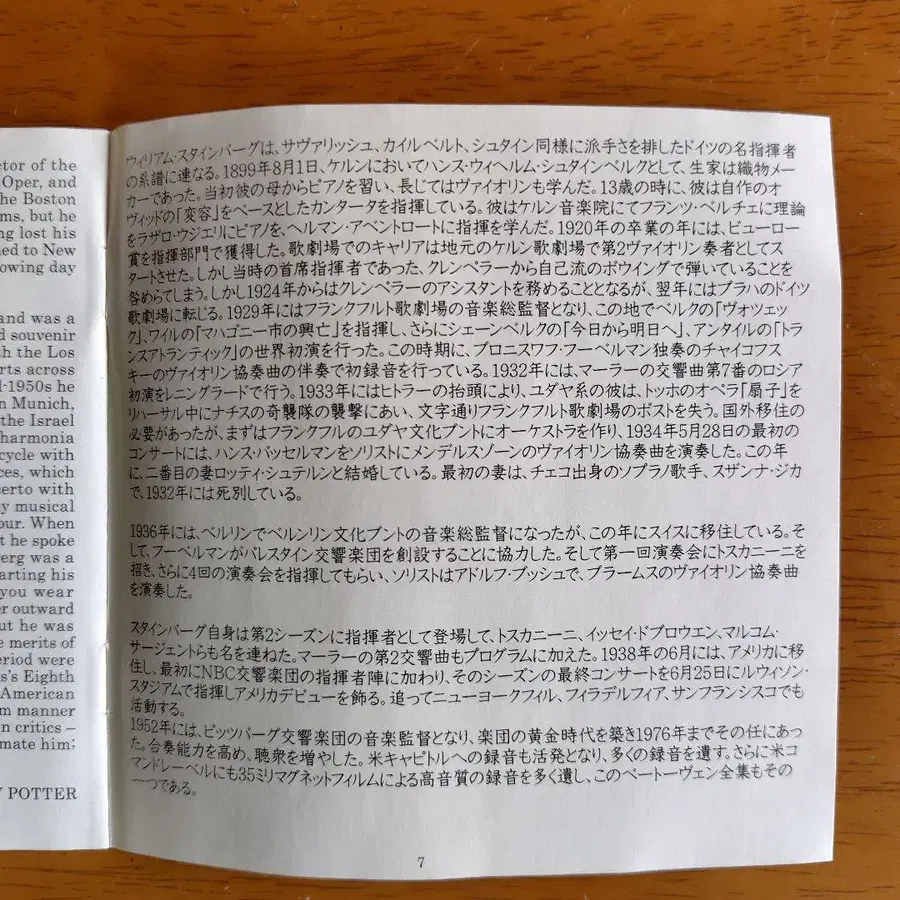 ctor of the
Oper, and
he Boston
ms, but he
ng lost his
ned to New
owing day
and was a
d souvenir
th the Los
rts across
d-1950s he
n Munich,
the Israel
harmonia
cycle with
ces, which
certo with
y musical
our. When
t he spoke
erg was a
arting his
you wear
er outward
ut he was
e merits of
eriod were
s's Eighth
American
m manner
n critics –
mate him;
Y POTTER
ウィリアム・スタインバーグは、サヴァリッシュ、カイルベルト、シュタイン同様に派手さを排したドイツの名指揮者
の系譜に連なる。1899年8月1日、ケルンにおいてハンス・ウィヘルム・シュタインベルクとして、生家は織物メー
カーであった。当初彼の母からピアノを習い、長じてはヴァイオリンも学んだ。13歳の時に、彼は自作のオ
ヴィッドの「変容」をベースとしたカンタータを指揮している。彼はケルン音楽院にてフランツ・ベルチェに理論
をラザロ・ウジエリにピアノを、ヘルマン・アベントロートに指揮を学んだ。1920年の卒業の年には、ビューロー
賞を指揮部門で獲得した。歌劇場でのキャリアは地元のケルン歌劇場で第2ヴァイオリン奏者としてス
タートさせた。しかし当時の首席指揮者であった、クレンペラーから自己流のボウイングで弾いていることを
咎めらてしまう。しかし1924年からはクレンペラーのアシスタントを務めることとなるが、翌年にはプラハのドイツ
歌劇場に転じる。1929年にはフランクフルト歌劇場の音楽総監督となり、この地でベルクの「ヴォツェッ
ク」、ワイルの「マハゴニー市の興亡」を指揮し、さらにシェーンベルクの「今日から明日へ」、アンタイルの「トラ
ンスアトランティック」の世界初演を行った。この時期に、ブロニスワフ・フーベルマン独奏のチャイコフス
キーのヴァイオリン協奏曲の伴奏で初録音を行っている。1932年には、マーラーの交響曲第7番のロシア
初演をレニングラードで行う。1933年にはヒトラーの抬頭により、ユダヤ系の彼は、トッホのオペラ「扇子」を
リハーサル中にナチスの奇襲隊の襲撃にあい、文字通りフランクフルト歌劇場のポストを失う。国外移住の
必要があったが、まずはフランクフルのユダヤ文化ブントにオーケストラを作り、1934年5月28日の最初の
コンサートには、ハンス・バッセルマンをソリストにメンデルスゾーンのヴァイオリン協奏曲を演奏した。この年
に、二番目の妻ロッティ・シュテルンと結婚している。最初の妻は、チェコ出身のソプラノ歌手、スザンナ・ジカ
で、1932年には死別している。
1936年には、ベルリンでベルンリン文化ブントの音楽総監督になったが、この年にスイスに移住している。そ
して、フーベルマンがパレスタイン交響楽団を創設することに協力した。そして第一回演奏会にトスカニーニを
招き、さらに4回の演奏会を指揮してもらい、ソリストはアドルフ・ブッシュで、ブラームスのヴァイオリン協奏曲
を演奏した。
スタインバーグ自身は第2シーズンに指揮者として登場して、トスカニーニ、イッセイ・ドブロウエン、マルコム・
サージェントらも名を連ねた。マーラーの第2交響曲もプログラムに加えた。1938年の6月には、アメリカに移
住し、最初にNBC交響楽団の指揮者陣に加わり、そのシーズンの最終コンサートを6月25日にルウィソン・
スタジアムで指揮しアメリカデビューを飾る。追ってニューヨークフィル、フィラデルフィア、サンフランシスコでも
活動する。
1952年には、ピッツバーグ交響楽団の音楽監督となり、楽団の黄金時代を築き1976年までその任にあっ
た。合奏能力を高め、聴衆を増やした。米キャピトルへの録音も活発となり、多くの録音を遺す。さらに米コ
マンドレーベルにも35ミリマグネットフィルムによる高音質の録音を多く遺し、このベートーヴェン全集もその
一つである。
7